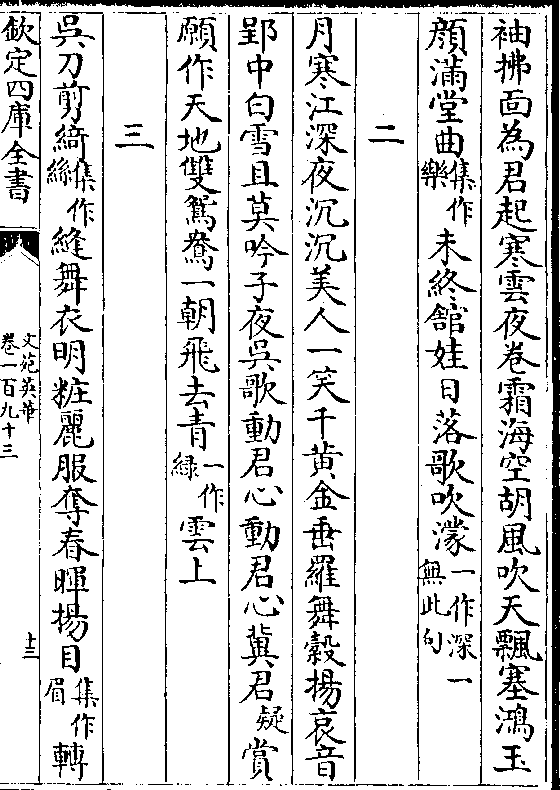 袖拂面為君起寒雲夜卷霜海空胡風吹天飄塞鴻玉
顔滿堂曲集作樂未終舘娃日落歌吹濛一作深一無此句
二
月寒江深夜沉沉美人一笑千黄金垂羅舞縠揚哀音
郢中白雪且莫吟子夜吳歌動君心動君心冀君疑賞
願作天地雙鴛鴦一朝飛去青一作緑雲上
三
吳刀剪綺集作絲縫舞衣明粧麗服奪春暉揚目集作眉轉
欽定四庫全書
文苑英華
卷一百九十三
十三